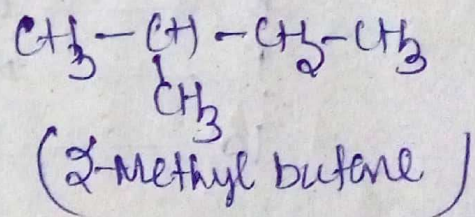 CH3-CH-CH2-CH3
CH3
(2-Methyl butane)